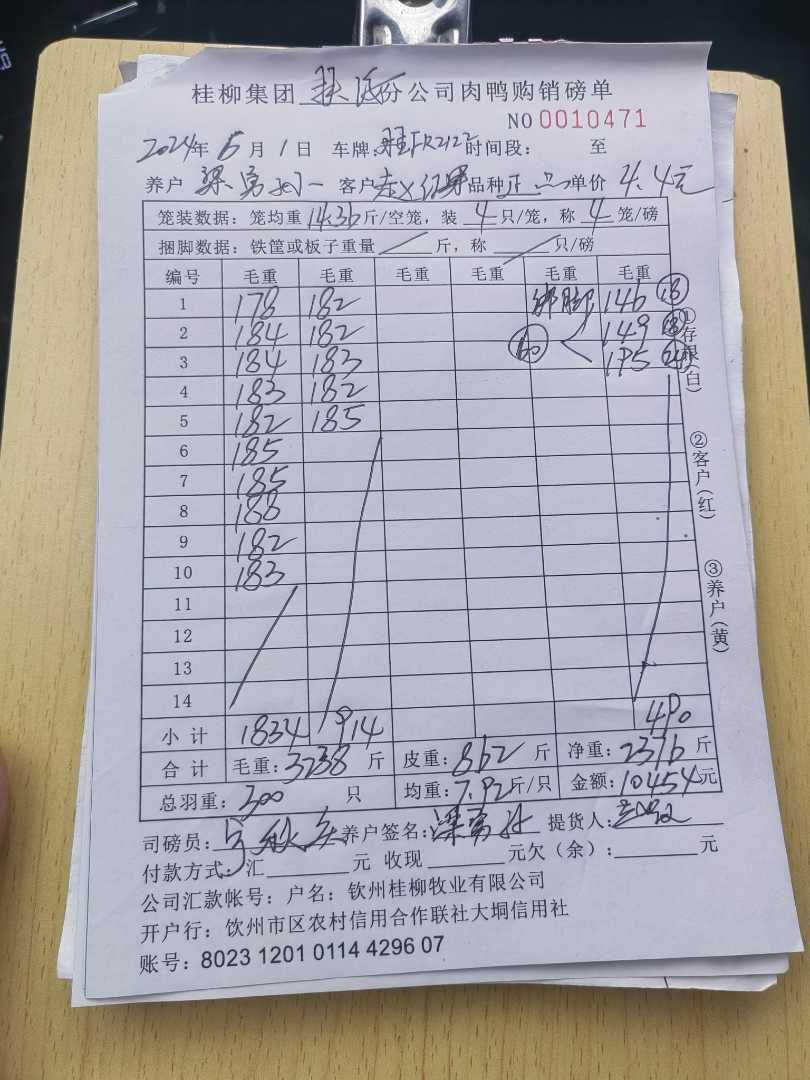 桂柳集团 份公司肉鸭购销磅单
NO 0010471
2024年 6月 1日 车牌: FR2122 时间段: 至
养户 梁 客户 赵 品种 单价 4.4元
笼装数据: 笼均重 14.36 斤/空笼, 装 4 只/笼, 称 4 笼/磅
捆脚数据: 铁筐或板子重量 斤, 称 只/磅
编号 毛重 毛重 毛重 毛重 毛重 毛重
1 178 182 绑脚 146 18
2 184 182 149 18
3 184 183 60 195 24
4 183 182
5 182 185
6 185
7 185
8 188
9 182
10 183
11
12
13
14
小计 1834 914 490
合计 毛重: 3238 斤 皮重: 862 斤 净重: 2376 斤
总羽重: 300 只 均重: 7.92 斤/只 金额: 10454 元
司磅员: 养户签名: 梁 提货人:
付款方式: 汇 元 收现 元欠(余): 元
公司汇款帐号: 户名: 钦州桂柳牧业有限公司
开户行: 钦州市区农村信用合作联社大垌信用社
账号: 8023 1201 0114 4296 07
①存根(白)
②客户(红)
③养户(黄)